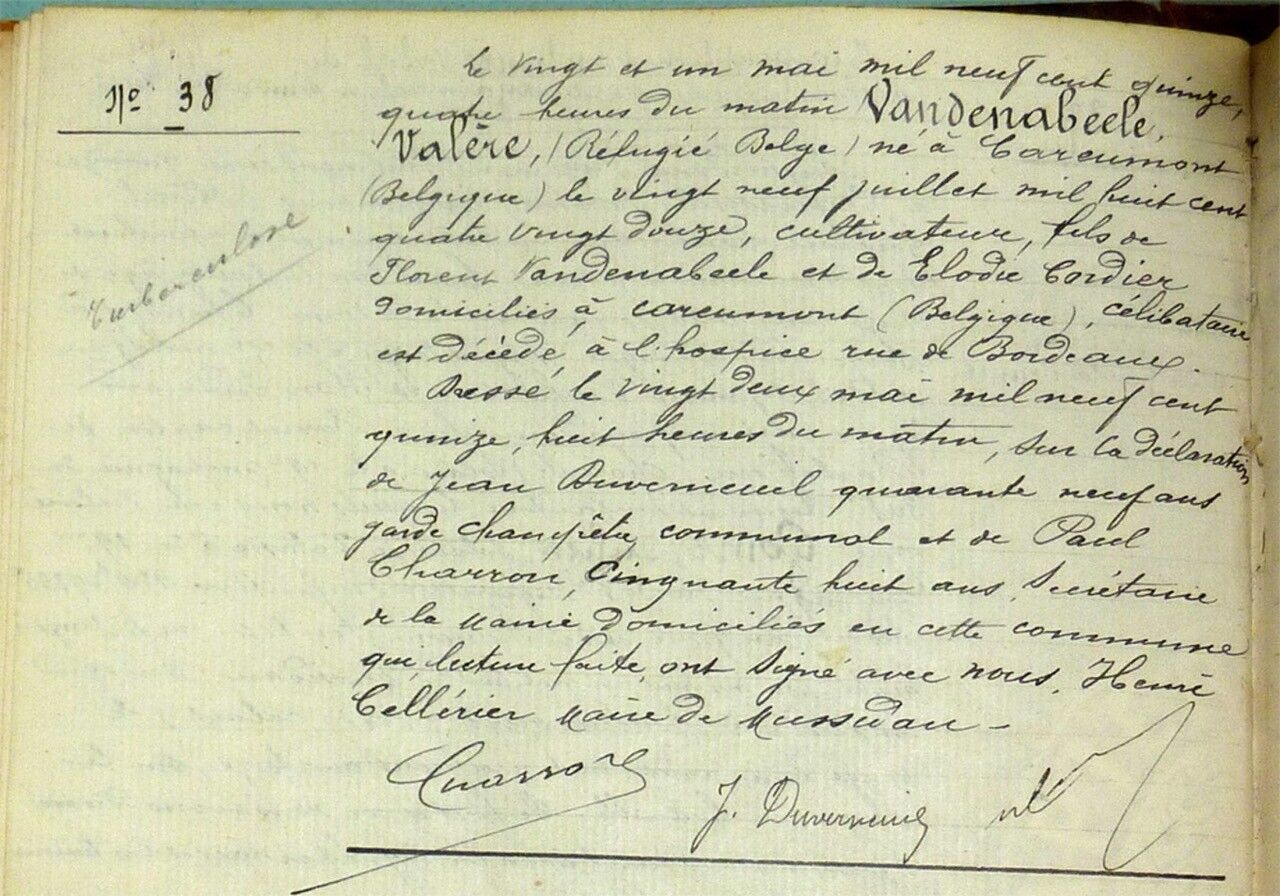 Nº 38
Turberculose
Le vingt et un mai mil neuf cent quinze,
quatre heures du matin Vandenabeele,
Valère, (Réfugié Belge) né à Careumont
(Belgique) le vingt neuf juillet mil huit cent
quatre vingt douze, cultivateur, fils de
Florent Vandenabeele et de Elodie Cordier
domiciliés à Careumont (Belgique), célibataire
est décédé à l'hospice rue de Bordeaux.
Dressé le vingt deux mai mil neuf cent
quinze, huit heures du matin, sur la déclaration
de Jean Duverneuil quarante neuf ans
garde champêtre communal et de Paul
Charron, Cinquante huit ans, Secrétaire
de la Mairie domiciliés en cette commune
qui, lecture faite, ont signé avec nous, Henri
Cellérier Maire de Mussidan –
Charron
J. Duverneuil